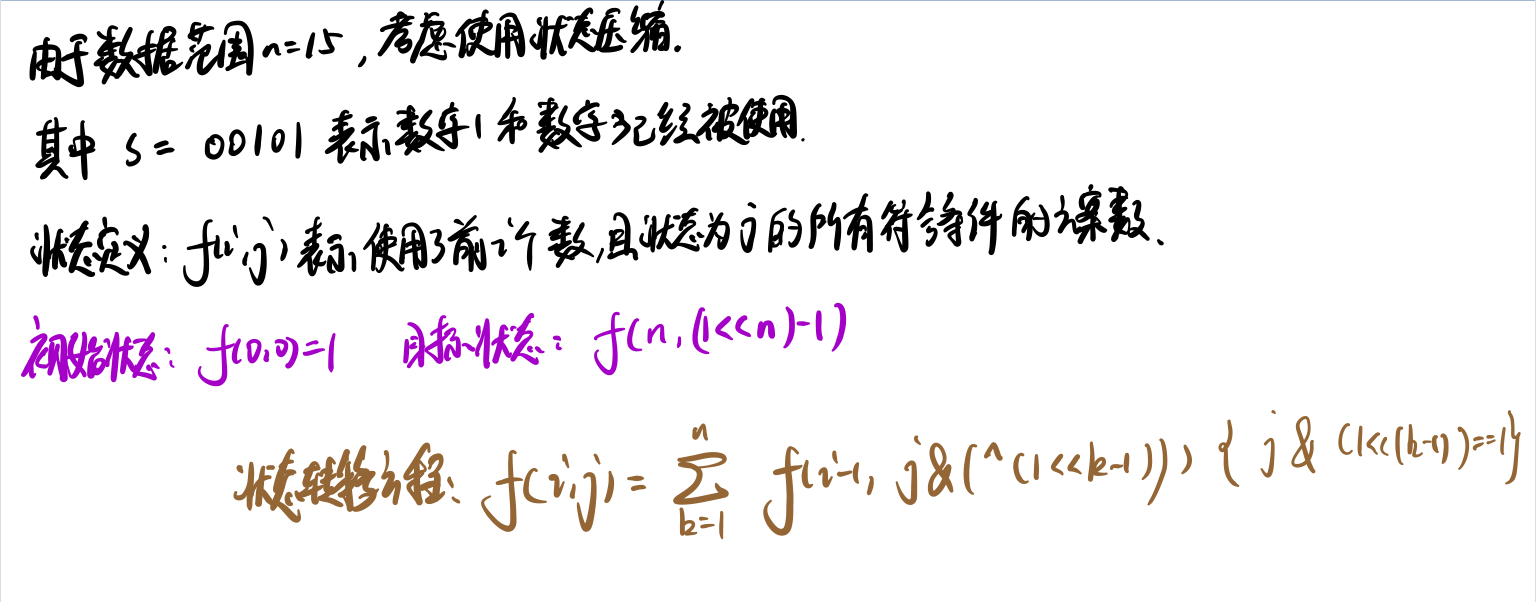 由于数据范围n=15,考虑使用状态压缩.
其中 s = 00101 表示数字1和数字3已经被使用.
状态定义:f(i,j)表示使用了前i个数,且状态为j的所有符合条件的方案数、
初始状态:f(0,0)=1 目标状态:f(n,(1<<n)-1)
状态转移方程:f(i,j)=∑_{k=1}^{n} f(i-1, j&(^(1<<k-1))) { j & (1<<(k-1))==1}